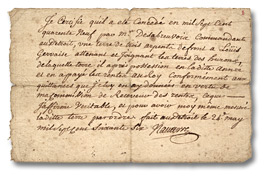 Je Certifie quil a été Concédé en mil Sept Cent
quarente Neuf par Mr. Desabrevois Commandant
au detroit, une terre de Cent arpents de front a Louis
Gervais attenant et joignant les terres des
delaquelle terre il a pris possession en la ditte année
et en a payé les rentes au Roy Conformement aux
quittances que j'ai en données en vertu de
ma Commission de Receveur des rentes, ce que
Jaffirme Veritable, et pour avoir moy meme
la ditte terre par ordre fait au detroit le 24 may
mil Sept Cent Soixante Six Navarre